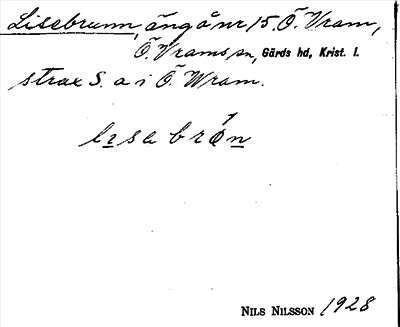 Lisebrunn, äng å nr 15 Ö. Vram,
Ö. Vrams sn, Gärds hd, Krist. l.
strax S. a i Ö. Wram.
lısa brön
NILS NILSSON 1928